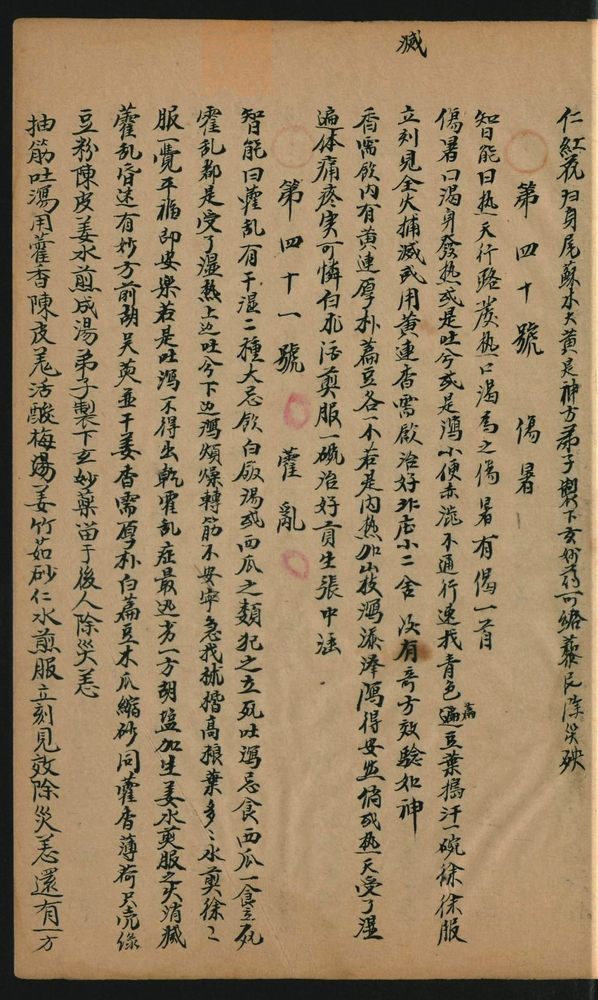 仁紅花归身尾蘇木大黄是神方弟子製下玄妙药可给藜民除災殃
第四十號　傷暑
智能曰热天行路發热口渴為之傷暑有偈一首
傷暑口渴身發热或是吐兮或是瀉小便赤澁不通行速找青色遍豆葉搗汁一碗徐徐服
萹
立刻見全火捕滅或用黄連香需飲治好水店小二舍没有奇方效驗如神
滅
香需飲内有黄連厚朴萹豆各一不若是内热加山枝瀉添澤瀉得安然倘或热天受了湿
遍体痛疼实可憐白朮湯煎服一碗治好貢生張中
第四十一號　藿亂
智能曰藿乱有干湿二種大忌飲白飯湯或西瓜之類犯之立死吐瀉忌食西瓜一食立死
霍乱都是受了湿热上边吐兮下边瀉煩燥轉筋不安寧急找梳楷高粮葉多〻水煎徐〻
服一覺平福即安樂若是吐瀉不得出乾霍乱症最迅方一方胡盐加生姜水煎服之災消滅
藿乱昏迷有妙方前胡吴萸並干姜香需厚朴白萹豆木瓜縮砂同藿香薄荷天壳綠
豆粉陳皮姜水煎成湯弟子製下玄妙藥笛于後人除災恙
抽筋吐瀉用藿香陳皮羌活酸梅湯姜竹茹砂仁水煎服立刻見效除災恙還有一方